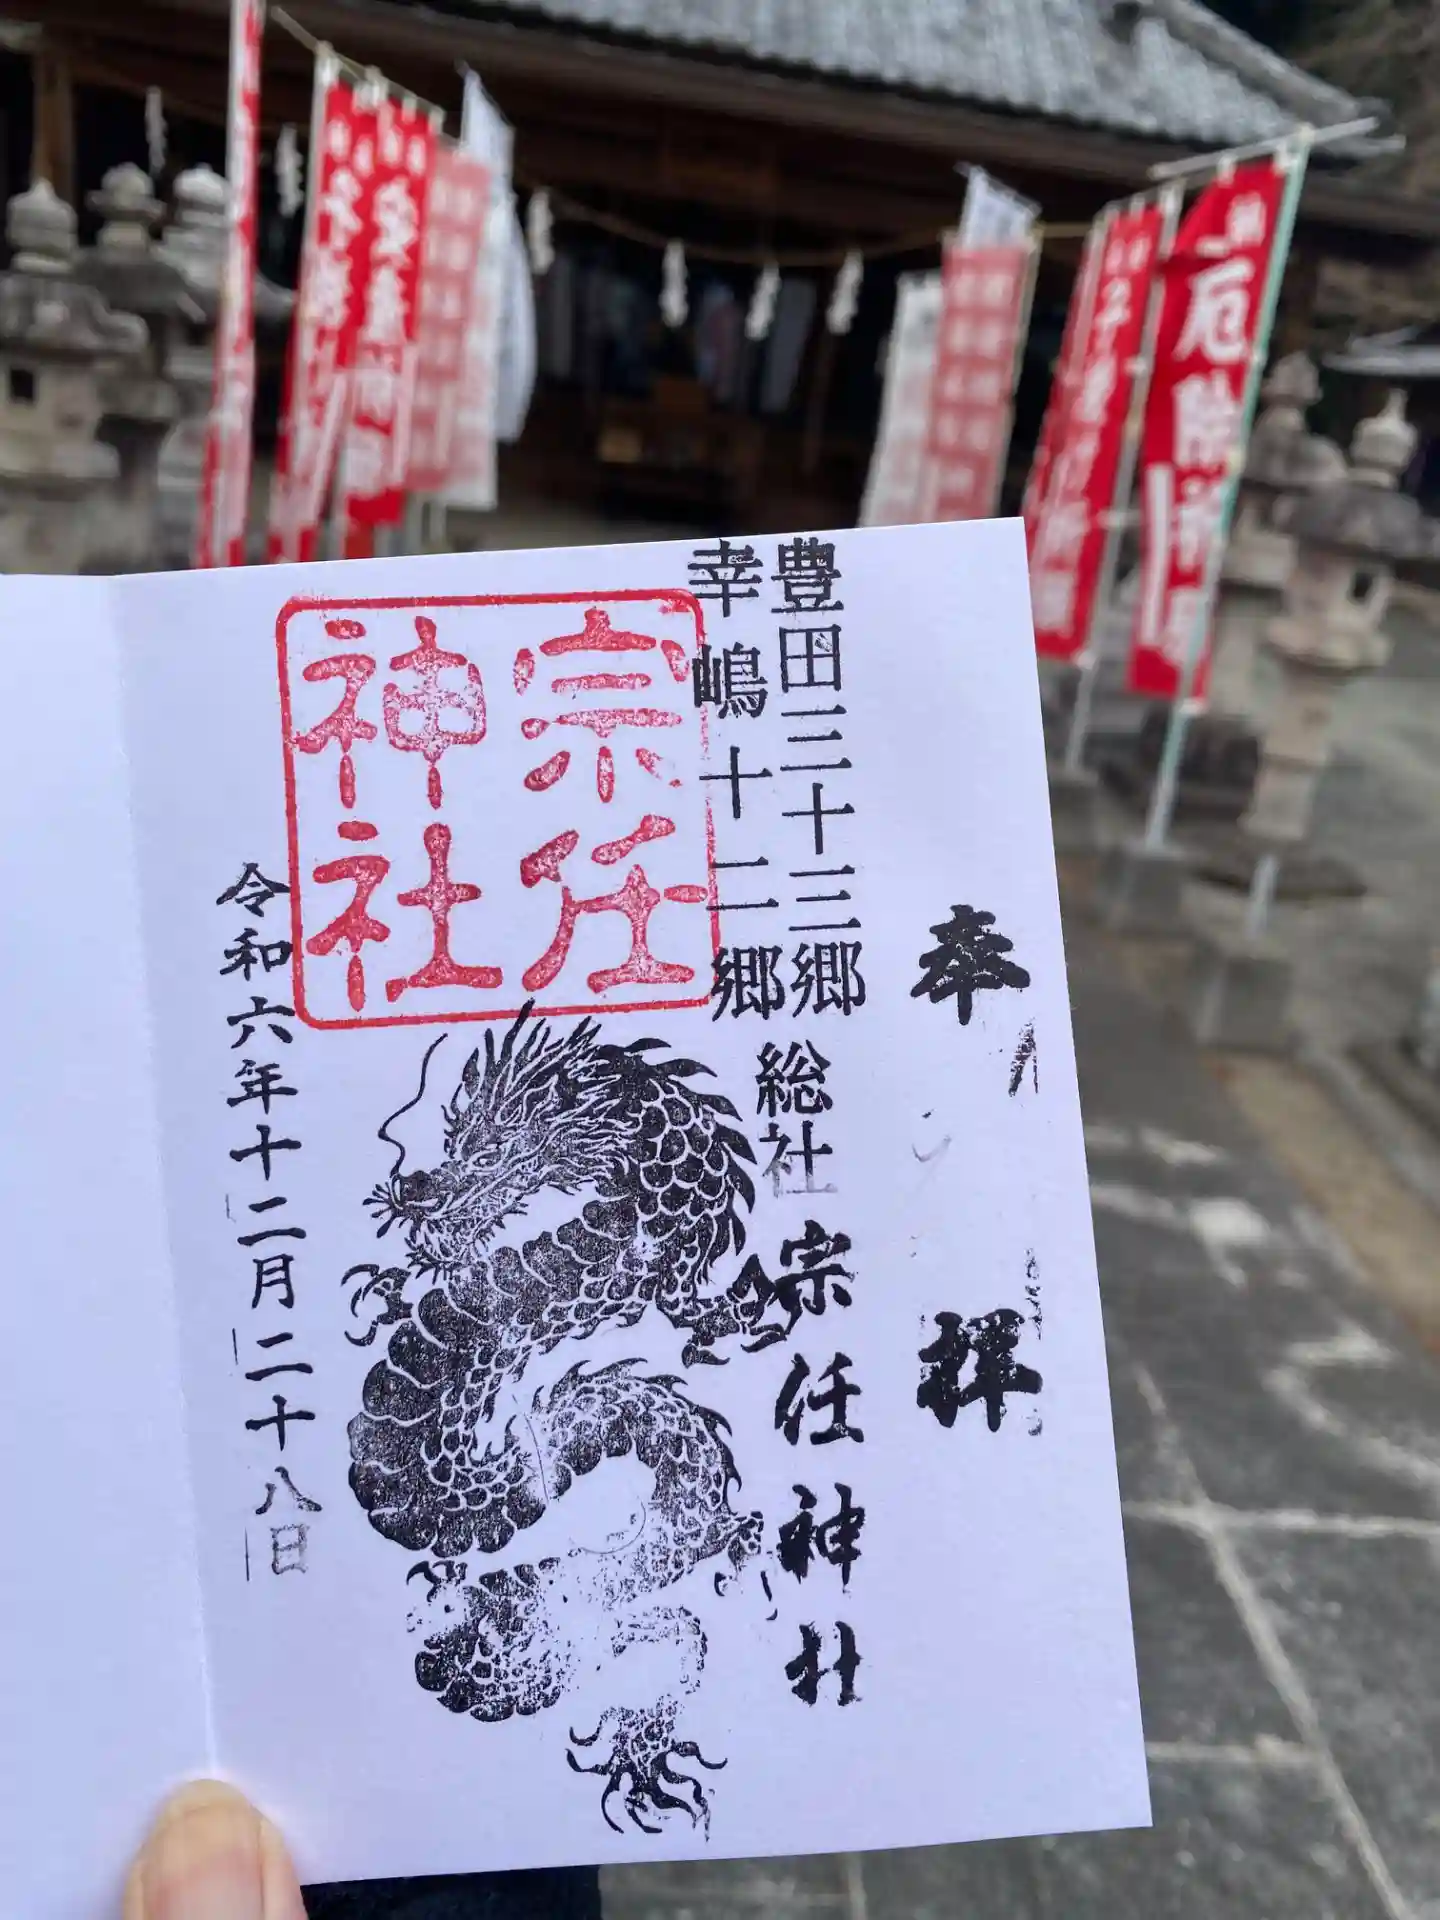 奉拝
豊田三十三郷
幸嶋十二郷
総社
宗任神社
宗任
神社
令和六年十二月二十八日
厄除祈願